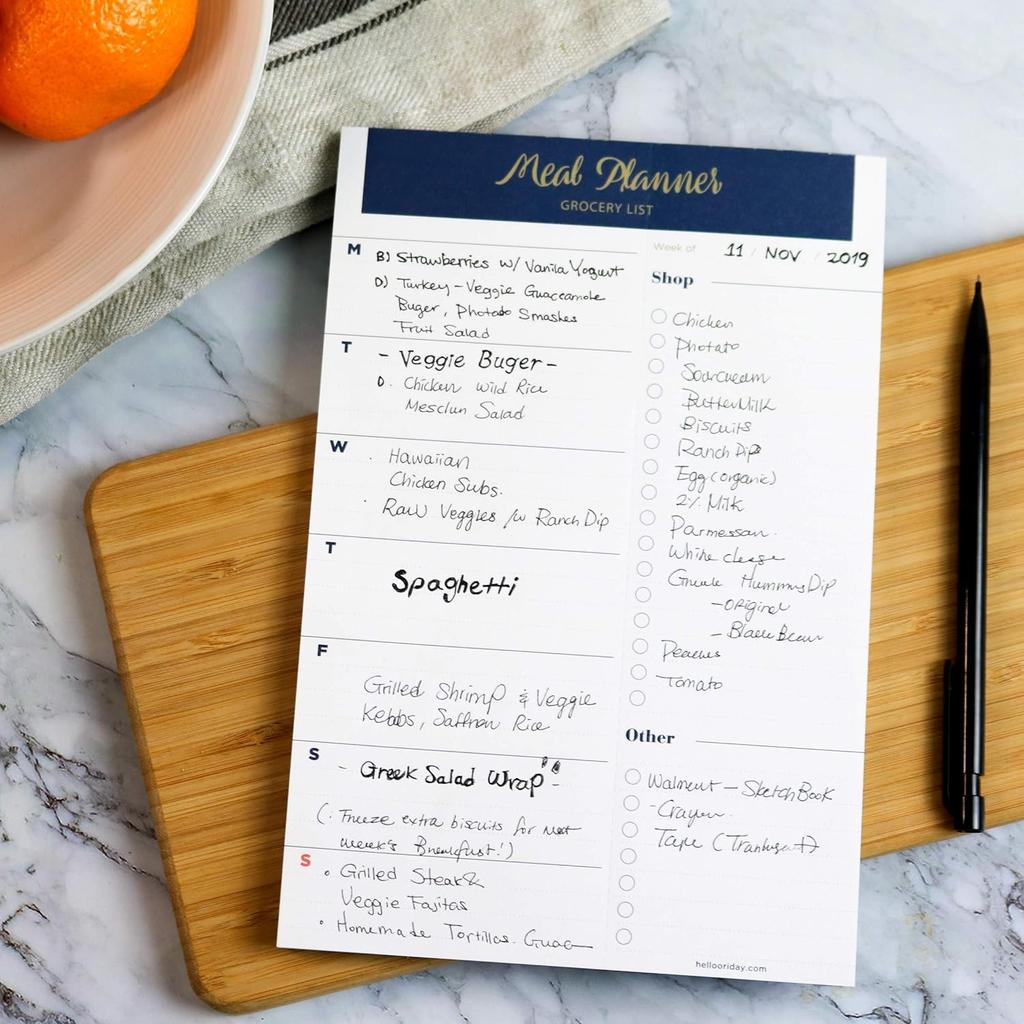 Meal Planner
GROCERY LIST
Week of 11 / NOV / 2019
M
B) Strawberries w/ Vanila Yogurt
D) Turkey - Veggie Guacamole
Buger, Photato Smashes
Fruit Salad
T
- Veggie Buger -
D. Chicken Wild Rice
Mesclun Salad
W
. Hawaiian
Chicken Subs.
. Raw Veggies /w Ranch Dip
T
Spaghetti
F
Grilled Shrimp & Veggie
Kebbs, Saffron Rice
S
- Greek Salad Wrap -
(. Freeze extra biscuits for next
week's Breakfast!)
S
• Grilled Steak &
Veggie Fajitas
• Homemade Tortillas. Guac
Shop
Chicken
Photato
Sourcream
ButterMilk
Biscuits
Ranch Dip
Egg (organic)
2% Milk
Parmessan.
White
Hummus Dip
- original
- Black Bean
Peaches
Tomato
Other
- SketchBook
- Crayon.
Tape
hellooriday.com